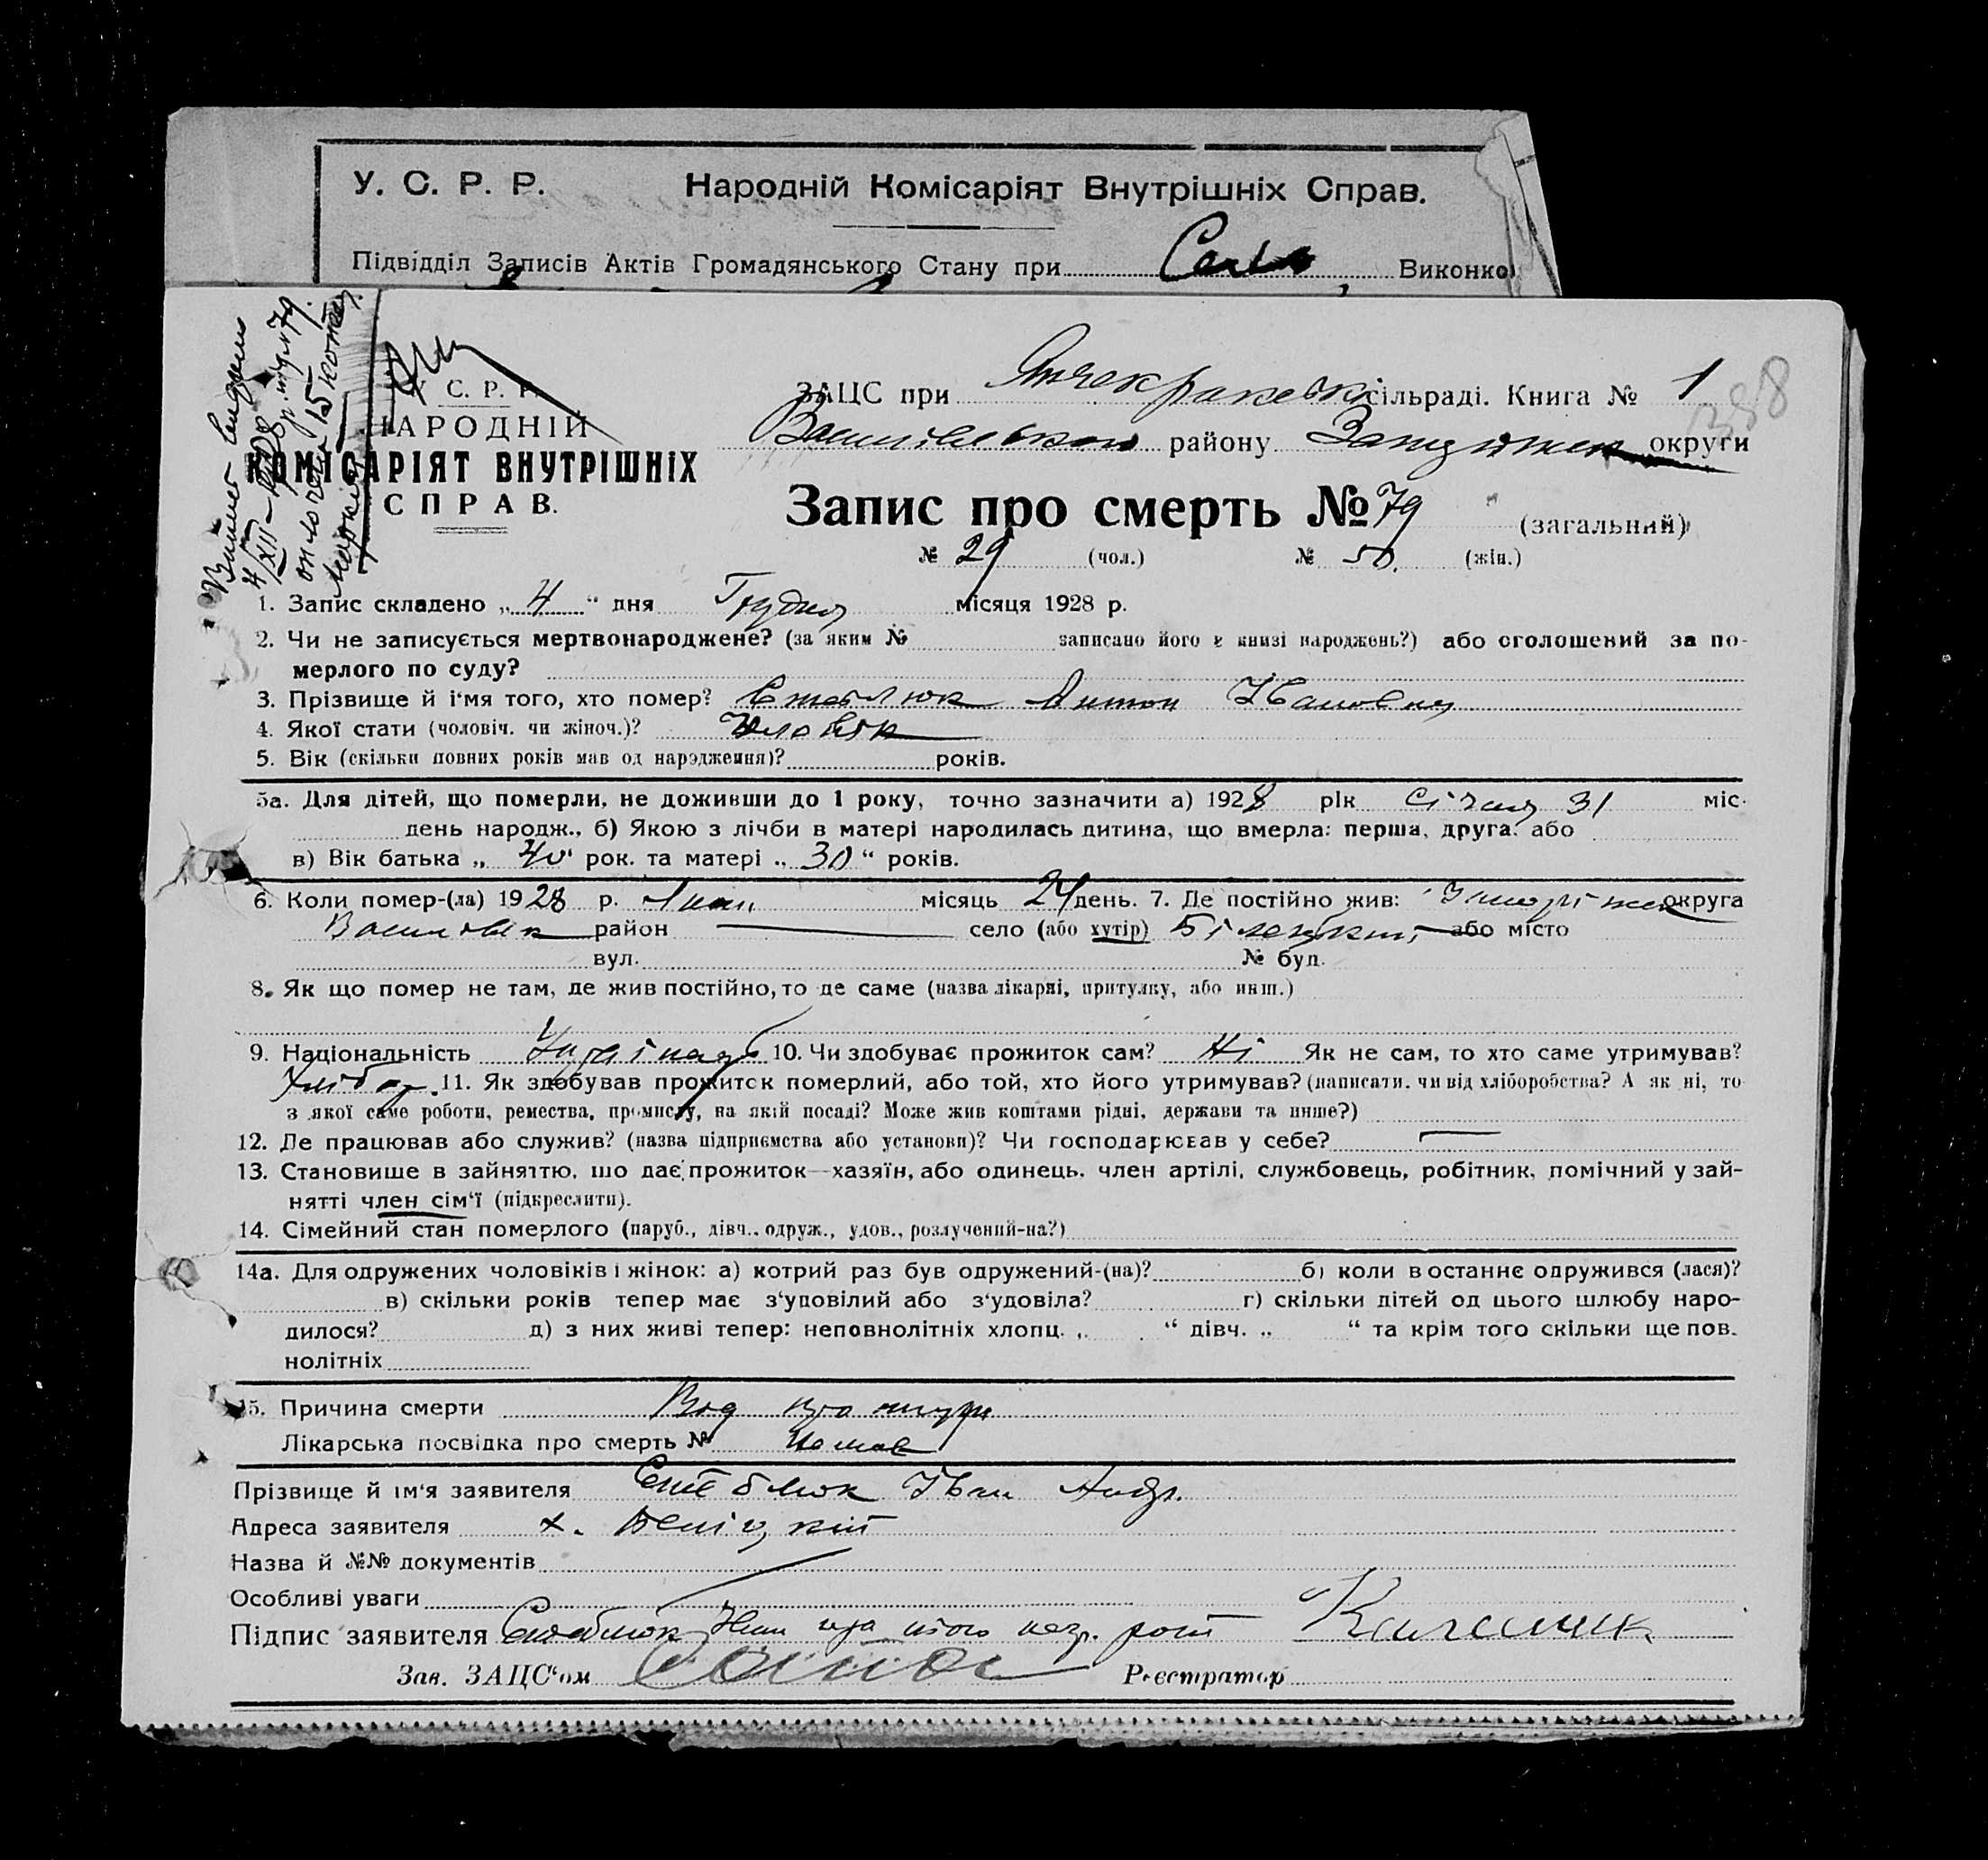 У. С. Р. Р. Народній Комісаріят Внутрішніх Справ.
Підвідділ Записів Актів Громадянського Стану при Виконко
У С. Р. Р.
НАРОДНІЙ
КОМІСАРІЯТ ВНУТРІШНІХ
СПРАВ.
ЗАЦС при сільраді. Книга № 1
388
Василівського району округи
Запис про смерть № 79 (загальний)
№ 29 (чол.) № 50. (жін.)
1. Запис складено „ 4 “ дня Грудня місяця 1928 р.
2. Чи не записується мертвонароджене? (за яким № записано його в книзі народжень?) або оголошений за по-
мерлого по суду?
3. Прізвище й і'мя того, хто помер? Стеблюк Антон Іванович
4. Якої стати (чоловіч. чи жіноч.)? Чоловік
5. Вік (скільки повних років мав од народження)? років.
5а. Для дітей, що померли, не доживши до 1 року, точно зазначити а) 1928 рік Січня 31 міс.
день народж., б) Якою з лічби в матері народилась дитина, що вмерла: перша, друга, або
в) Вік батька „ 40 “ рок. та матері „ 30 “ років.
6. Коли помер-(ла) 1928 р. місяць 24 день. 7. Де постійно жив: округа
Василівськ район село (або хутір) або місто
вул. № буд.
8. Як що помер не там, де жив постійно, то де саме (назва лікарні, притулку, або инш.)
9. Національність 10. Чи здобуває прожиток сам? Ні Як не сам, то хто саме утримував?
11. Як здобував прожиток померлий, або той, хто його утримував? (написати. чи від хліборобства? А як ні, то
з якої саме роботи, ремества, промислу, на якій посаді? Може жив коштами рідні, держави та инше?)
12. Де працював або служив? (назва підприємства або установи)? Чи господарював у себе?
13. Становище в зайняттю, що дає прожиток—хазяїн, або одинець, член артілі, службовець, робітник, помічний у зай-
нятті член сім'ї (підкреслити).
14. Сімейний стан померлого (паруб., дівч., одруж., удов., розлучений-на?)
14а. Для одружених чоловіків і жінок: а) котрий раз був одружений-(на)? б) коли в останнє одружився (лася)?
в) скільки років тепер має з'уповілий або з'удовіла? г) скільки дітей од цього шлюбу наро-
дилося? д) з них живі тепер: неповнолітніх хлопц. „ “ дівч. „ “ та крім того скільки ще пов.
нолітніх
15. Причина смерти Від простуди
Лікарська посвідка про смерть № немає
Прізвище й ім'я заявителя Стеблюк Іван Андр.
Адреса заявителя х.
Назва й №№ документів
Особливі уваги
Підпис заявителя Стеблюк Іван
Зав. ЗАЦС'ом Реєстратор